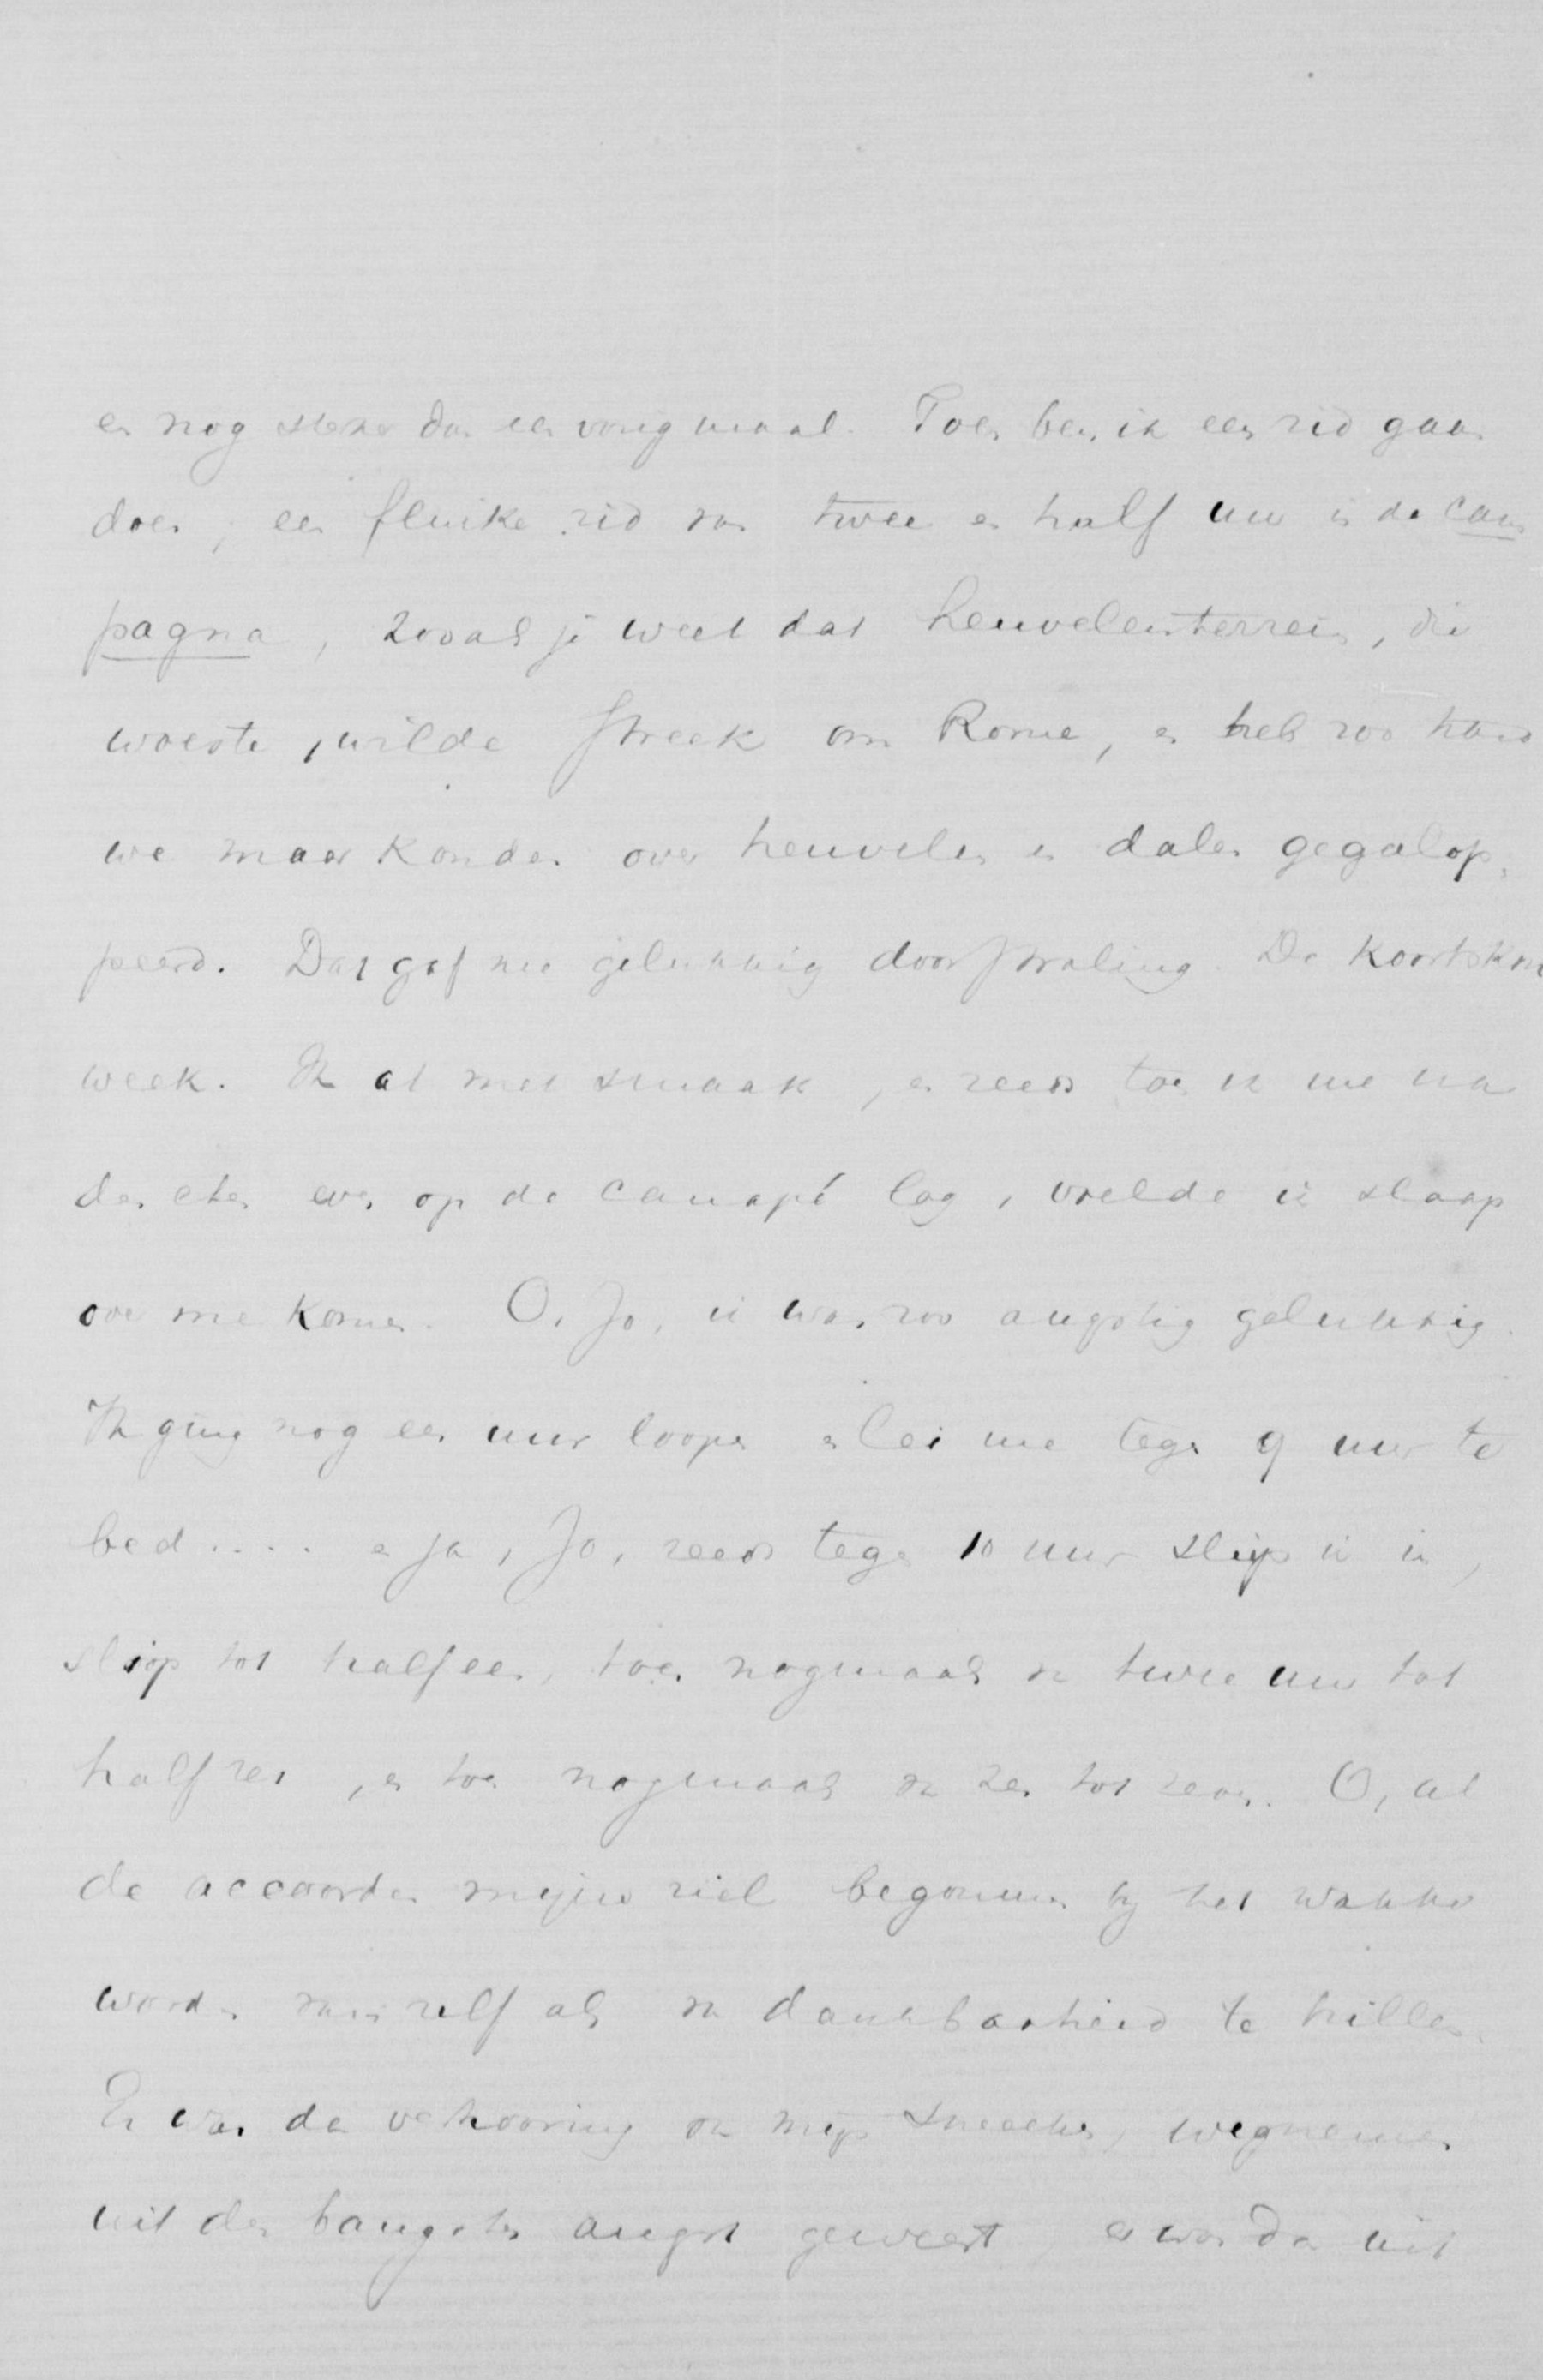 en nog sterker dan een vorig maal. Toen ben ik een rid gaan
doen, een flinke rid van twee en half uur in de cam
pagna, zooals je weet dat heuvelenterrein, die
woeste, wilde streek om Rome, en heb zoo hard
we maar konden over heuvelen en dalen gegalop-
peerd. Dat gaf me gelukkig doorstraling. De koorts
week. Ik at met smaak, en reeds toen ik me na
den eten even op de canapé lag, voelde ik slaap
over me komen. O, Jo, ik was zoo angstig gelukkig.
Ik ging nog een uur loopen en lei me tegen 9 uur te
bed.... en ja, Jo, reeds tegen 10 uur sliep ik in,
sliep tot halfeen, toen nogmaals van twee uur tot
halfzes, en toen nogmaals van zes tot zeven. O, al
de accoorden mijner ziel begonnen bij het wakker
worden vanzelf als van dankbaarheid te trillen.
Er was de verhooring van mijn smeeken, wegnemen
uit den bangsten angst geweest, er was de uit